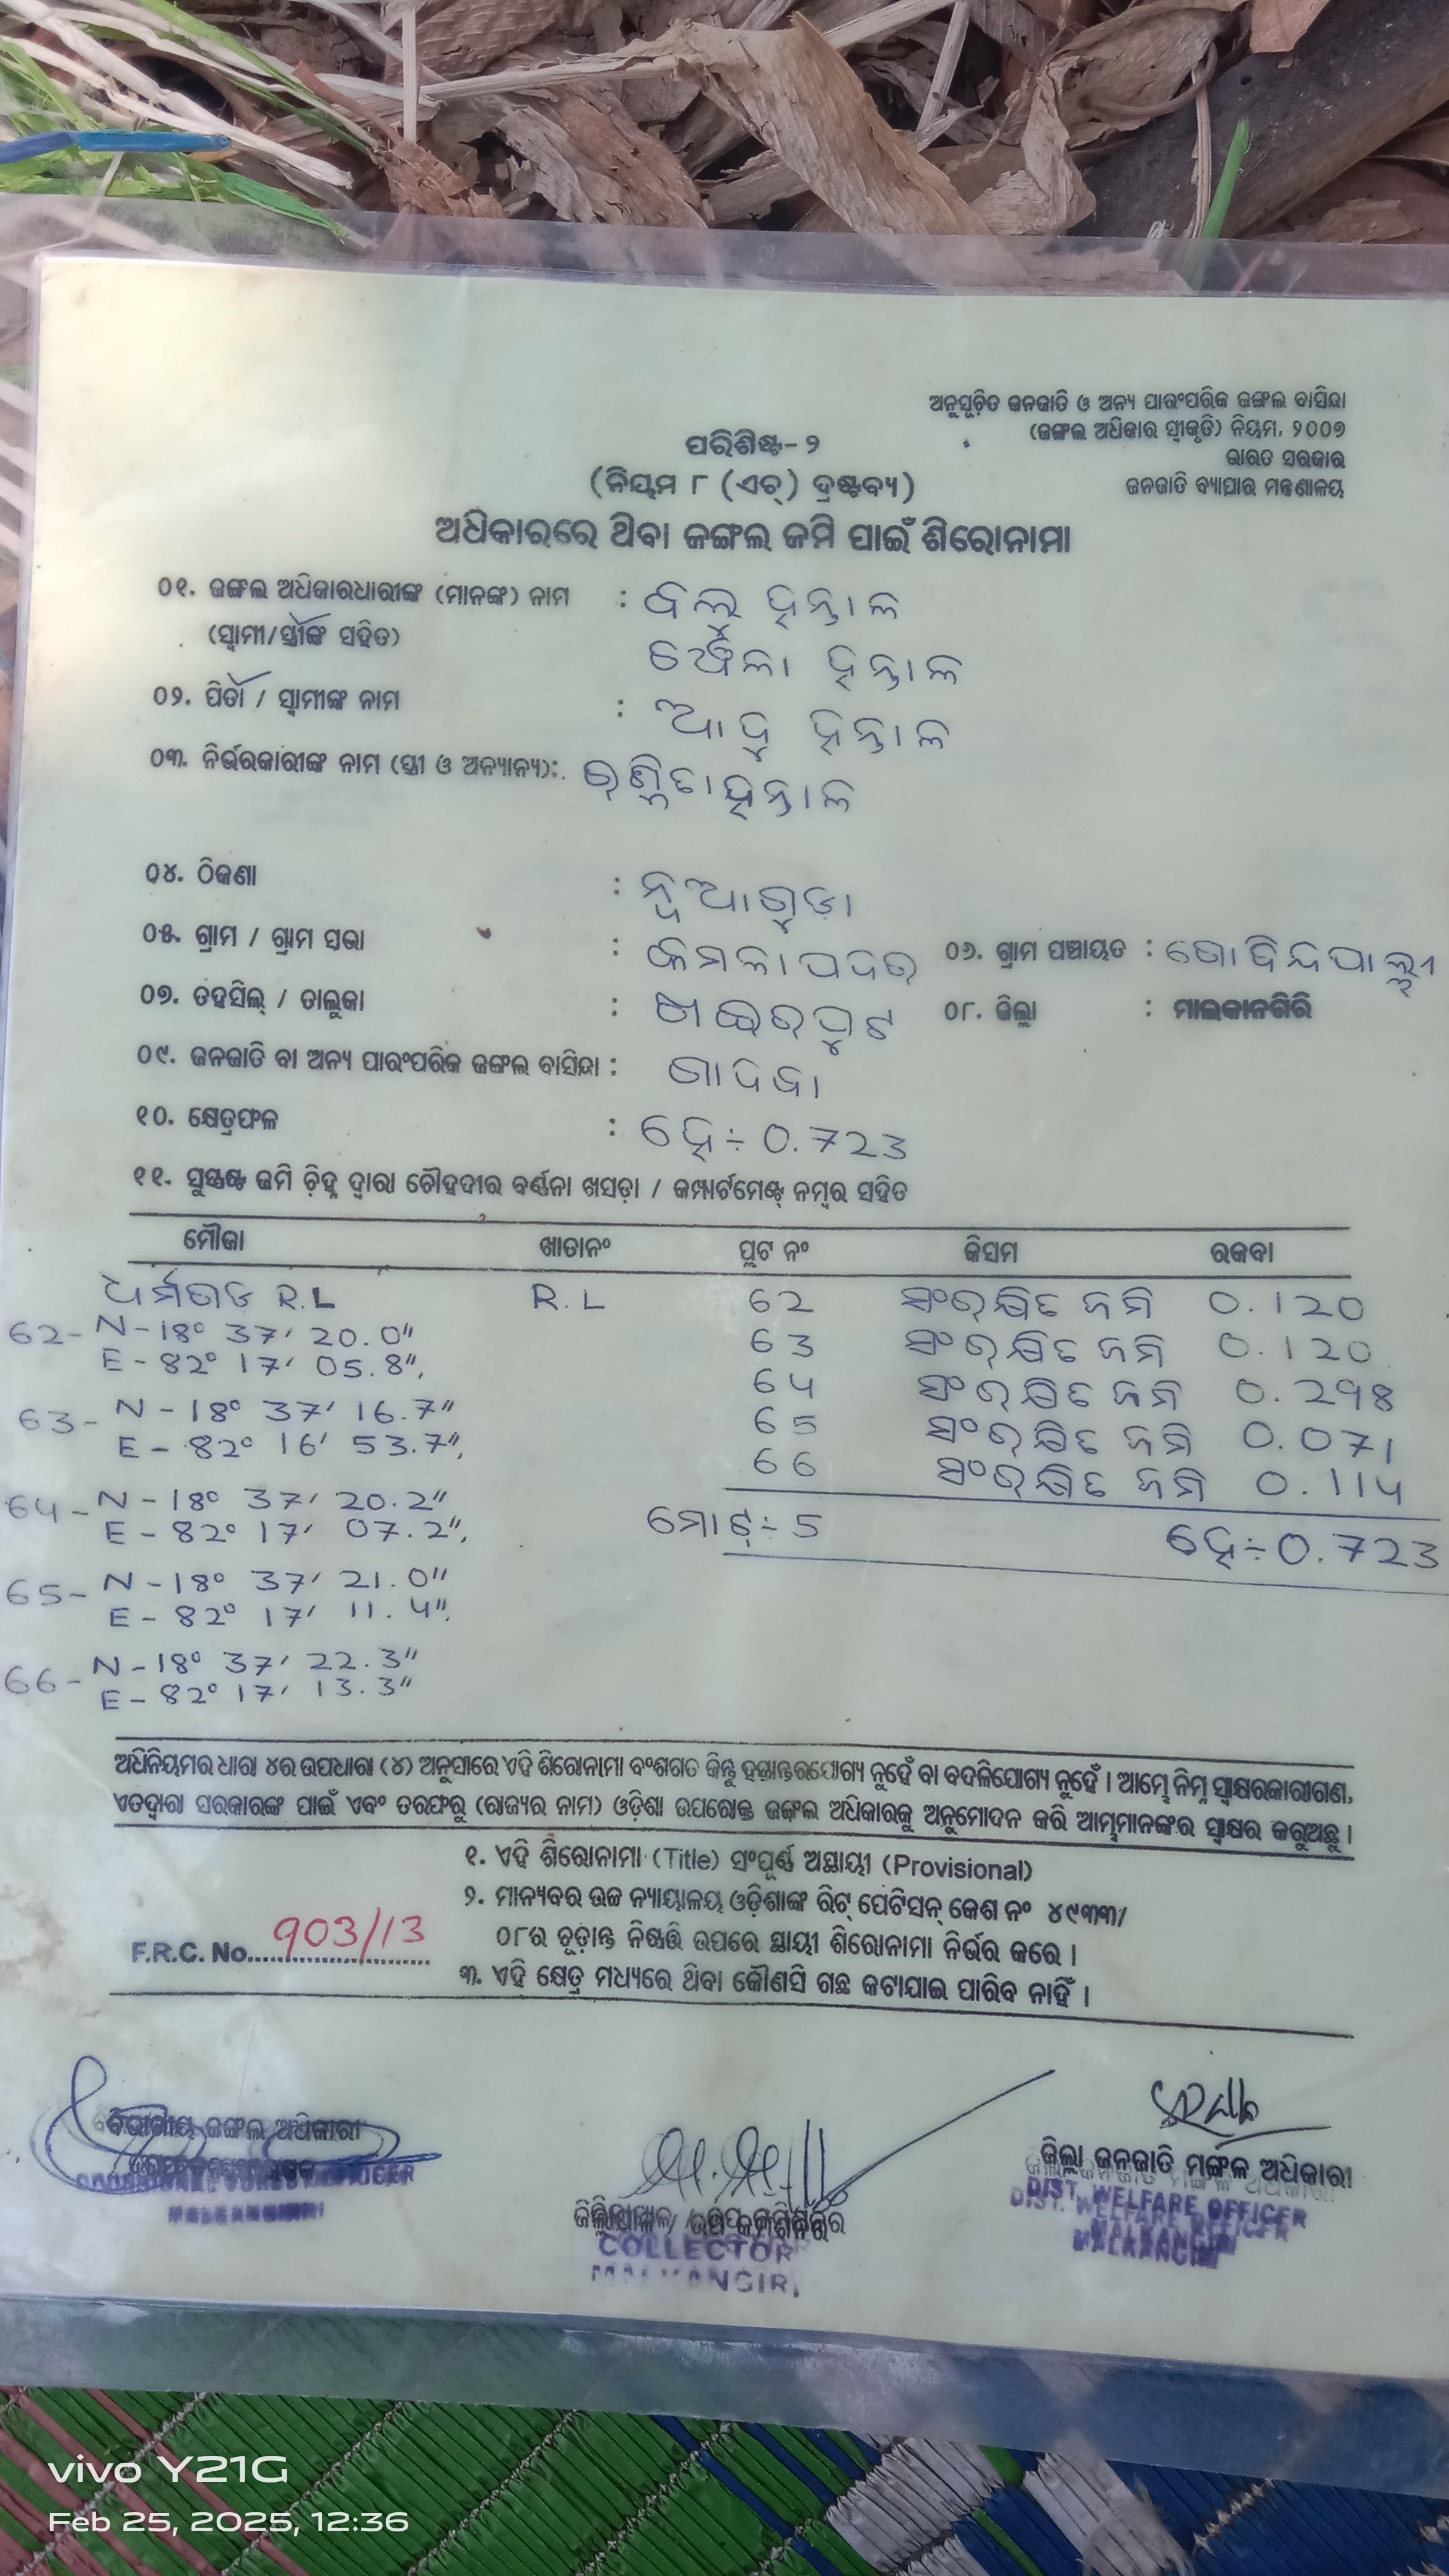 ଅନୁସୂଚିତ ଜନଜାତି ଓ ଅନ୍ୟ ପାରଂପରିକ ଜଙ୍ଗଲ ବାସିନ୍ଦା
(ଜଙ୍ଗଲ ଅଧିକାର ସ୍ୱୀକୃତି) ନିୟମ, ୨୦୦୭
ଭାରତ ସରକାର
ଜନଜାତି ବ୍ୟାପାର ମନ୍ତ୍ରଣାଳୟ
ପରିଶିଷ୍ଟ- ୨
(ନିୟମ ୮ (ଏଚ୍) ଦ୍ରଷ୍ଟବ୍ୟ)
ଅଧିକାରରେ ଥିବା ଜଙ୍ଗଲ ଜମି ପାଇଁ ଶିରୋନାମା
୦୧. ଜଙ୍ଗଲ ଅଧିକାରଧାରୀଙ୍କ (ମାନଙ୍କ) ନାମ : ବଲ୍ଲୁ ହନ୍ତାଳ
(ସ୍ୱାମୀ/ସ୍ତ୍ରୀଙ୍କ ସହିତ) ଫୈଳା ହନ୍ତାଳ
୦୨. ପିତା / ସ୍ୱାମୀଙ୍କ ନାମ : ଆଦୁ ହନ୍ତାଳ
୦୩. ନିର୍ଭରକାରୀଙ୍କ ନାମ (ସ୍ତ୍ରୀ ଓ ଅନ୍ୟାନ୍ୟ): ହନ୍ତାଳ
୦୪. ଠିକଣା : ନୂଆଗୁଡା
୦୫. ଗ୍ରାମ / ଗ୍ରାମ ସଭା : କମଳାପଦର ୦୬. ଗ୍ରାମ ପଞ୍ଚାୟତ : ଗୋବିନ୍ଦପାଲ୍ଲୀ
୦୭. ତହସିଲ୍ / ତାଲୁକା : ଖଇରପୁଟ ୦୮. ଜିଲ୍ଲା : ମାଲକାନଗିରି
୦୯. ଜନଜାତି ବା ଅନ୍ୟ ପାରଂପରିକ ଜଙ୍ଗଲ ବାସିନ୍ଦା : ଗାଦବା
୧୦. କ୍ଷେତ୍ରଫଳ : ହେ÷0.723
୧୧. ସୁସ୍ପଷ୍ଟ ଜମି ଚିହ୍ନ ଦ୍ୱାରା ଚୌହଦୀର ବର୍ଣ୍ଣନା ଖସଡ଼ା / କମ୍ପାର୍ଟମେଣ୍ଟ୍ ନମ୍ବର ସହିତ
ମୌଜା ଖାତାନଂ ପ୍ଲଟ ନଂ କିସମ ରକବା
ଧର୍ମଗଡ R.L R.L 62 ସଂରକ୍ଷିତ ଜମି 0.120
62- N-18° 37' 20.0"
E-82° 17' 05.8", 63 ସଂରକ୍ଷିତ ଜମି 0.120
63- N-18° 37' 16.7" 64 ସଂରକ୍ଷିତ ଜମି 0.298
E-82° 16' 53.7", 65 ସଂରକ୍ଷିତ ଜମି 0.071
66 ସଂରକ୍ଷିତ ଜମି 0.114
64- N-18° 37' 20.2"
E-82° 17' 07.2", ମୋଟ୍÷5 ହେ÷0.723
65- N-18° 37' 21.0"
E-82° 17' 11.4",
66- N-18° 37' 22.3"
E-82° 17' 13.3"
ଅଧିନିୟମର ଧାରା ୪ର ଉପଧାରା (୪) ଅନୁସାରେ ଏହି ଶିରୋନାମା ବଂଶଗତ କିନ୍ତୁ ହସ୍ତାନ୍ତରଯୋଗ୍ୟ ନୁହେଁ ବା ବଦଳିଯୋଗ୍ୟ ନୁହେଁ । ଆମ୍ଭେ ନିମ୍ନ ସ୍ୱାକ୍ଷରକାରୀଗଣ,
ଏତଦ୍ଦ୍ୱାରା ସରକାରଙ୍କ ପାଇଁ ଏବଂ ତରଫରୁ (ରାଜ୍ୟର ନାମ) ଓଡ଼ିଶା ଉପରୋକ୍ତ ଜଙ୍ଗଲ ଅଧିକାରକୁ ଅନୁମୋଦନ କରି ଆମ୍ଭମାନଙ୍କର ସ୍ୱାକ୍ଷର କରୁଅଛୁ ।
୧. ଏହି ଶିରୋନାମା (Title) ସଂପୂର୍ଣ୍ଣ ଅସ୍ଥାୟୀ (Provisional)
୨. ମାନ୍ୟବର ଉଚ୍ଚ ନ୍ୟାୟାଳୟ ଓଡ଼ିଶାଙ୍କ ରିଟ୍ ପେଟିସନ୍ କେଶ ନଂ ୪୯୩୩/
୦୮ର ଚୂଡ଼ାନ୍ତ ନିଷ୍ପତ୍ତି ଉପରେ ସ୍ଥାୟୀ ଶିରୋନାମା ନିର୍ଭର କରେ ।
F.R.C. No. 903/13
୩. ଏହି କ୍ଷେତ୍ର ମଧ୍ୟରେ ଥିବା କୌଣସି ଗଛ କଟାଯାଇ ପାରିବ ନାହିଁ ।
ବିଭାଗୀୟ ଜଙ୍ଗଲ ଅଧିକାରୀ
DIVISIONAL FOREST OFFICER
MALKANGIRI
ଜିଲ୍ଲାପାଳ / ଉପ କମିଶନର
COLLECTOR
MALKANGIRI
ଜିଲ୍ଲା ଜନଜାତି ମଙ୍ଗଳ ଅଧିକାରୀ
DIST. WELFARE OFFICER
MALKANGIRI
vivo Y21G
Feb 25, 2025, 12:36